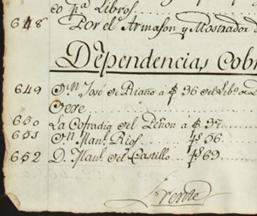 co pa. Libros
648 Por el Armason y Mostrador
Dependencias Cobr
649 Dn. Jose de Riaño a $ 36 del
Oere
650 La Cofradia del Peñon a $ 37
651 Dn. Man. Rios $ 56
652 D. Man. del Castillo $ 69